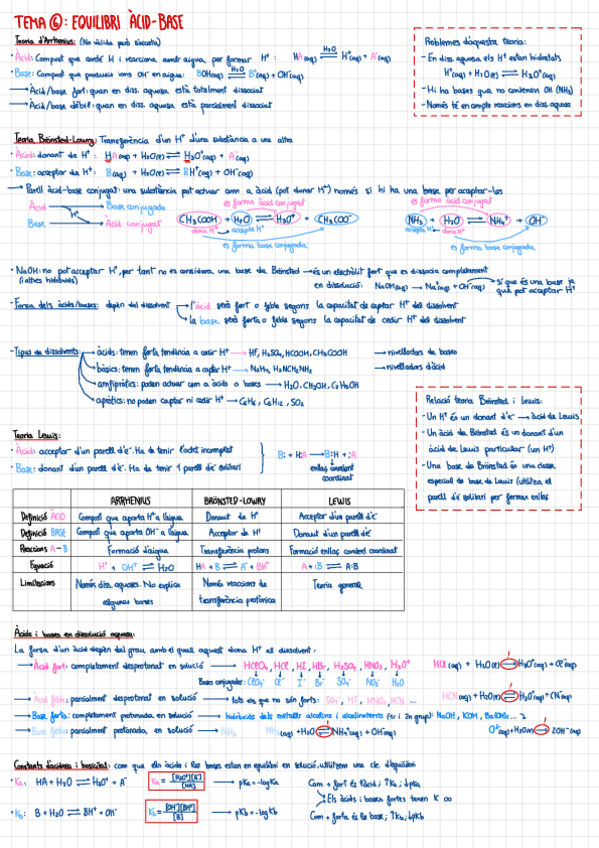 TEMA ⑥: EQUILIBRI ÀCID-BASE
Teoria d'Arrhenius: (No vàlida però s'accepta)
· Àcid: Compost que conté H i reacciona amb aigua, per formar H⁺: HA(aq) ⇌ H⁺(aq) + A⁻(aq)
H₂O
· Base: Compost que produeix ions OH⁻ en aigua: BOH(aq) ⇌ B⁺(aq) + OH⁻(aq)
H₂O
→ Àcid/base fort: quan en diss. aquosa està totalment dissociat
→ Àcid/base dèbil: quan en diss. aquosa està parcialment dissociat
Problemes d'aquesta teoria:
- En diss. aquosa els H⁺ estan hidratats
H⁺(aq) + H₂O(l) ⇌ H₃O⁺(aq)
- Hi ha bases que no contenen OH (NH₃)
- Només té en compte reaccions en diss. aquosa
Teoria Brönsted-Lowry: Transferència d'un H⁺ d'una substància a una altra
· Àcid: donant de H⁺: HA(aq) + H₂O(l) ⇌ H₃O⁺(aq) + A⁻(aq)
· Base: acceptor de H⁺: B(aq) + H₂O(l) ⇌ BH⁺(aq) + OH⁻(aq)
→ Parell àcid-base conjugat: una substància pot actuar com a àcid (pot donar H⁺) només si hi ha una base per acceptar-los
Àcid → Base conjugada
H⁺
Base → Àcid conjugat
es forma àcid conjugat
CH₃COOH + H₂O ⇌ H₃O⁺ + CH₃COO⁻
dona H⁺ accepta H⁺
es forma base conjugada
es forma àcid conjugat
NH₃ + H₂O ⇌ NH₄⁺ + OH⁻
accepta H⁺ dona H⁺
es forma base conjugada
· NaOH: no pot acceptar H⁺, per tant no es considera una base de Brönsted → és un electròlit fort que es dissocia completament
(i altres hidròxids)
en dissolució: NaOH(aq) → Na⁺(aq) + OH⁻(aq)
sí que és una base ja
que pot acceptar H⁺
- Força dels àcids/bases: depèn del dissolvent
l'àcid serà fort o feble segons la capacitat de captar H⁺ del dissolvent
la base serà forta o feble segons la capacitat de cedir H⁺ del dissolvent
- Tipus de dissolvents
àcids: tenen forta tendència a cedir H⁺ → HF, H₂SO₄, HCOOH, CH₃COOH → nivelladors de bases
bàsics: tenen forta tendència a captar H⁺ → NH₃, H₂NCH₂NH₂ → nivelladors d'àcid
amfipròtics: poden actuar com a àcids o bases → H₂O, CH₃OH, C₂H₅OH
apròtics: no poden captar ni cedir H⁺ → C₆H₆, C₆H₁₂, SO₂
Teoria Lewis:
· Àcid: acceptor d'un parell d'e⁻. Ha de tenir l'octet incomplet
· Base: donant d'un parell d'e⁻. Ha de tenir 1 parell d'e⁻ solitari
B: + H:A → B:H + :A
enllaç covalent
coordinat
Relació teoria Brönsted i Lewis:
- Un H⁺ és un donant d'e⁻ → àcid de Lewis
- Un àcid de Brönsted és un donant d'un
àcid de Lewis particular (un H⁺)
- Una base de Brönsted és una classe
especial de base de Lewis (utilitza el
parell d'e⁻ solitari per formar enllaç
ARRHENIUS BRÖNSTED-LOWRY LEWIS
Definició ÀCID Compost que aporta H⁺ a l'aigua Donant de H⁺ Acceptor d'un parell d'e⁻
Definició BASE Compost que aporta OH⁻ a l'aigua Acceptor de H⁺ Donant d'un parell d'e⁻
Reaccions A-B Formació d'aigua Transferència protons Formació enllaç covalent coordinat
Equació H⁺ + OH⁻ ⇌ H₂O HA + B ⇌ A⁻ + BH⁺ A + :B ⇌ A:B
Limitacions Només diss. aquoses. No explica Només reaccions de Teoria general
algunes bases transferència protònica
Àcids i bases en dissolució aquosa:
La força d'un àcid depèn del grau amb el qual aquest dona H⁺ al dissolvent:
→ Àcid fort: completament desprotonat en solució → HClO₄, HCl, HI, HBr, H₂SO₄, HNO₃, H₃O⁺
HCl(aq) + H₂O(l) → H₃O⁺(aq) + Cl⁻(aq)
Bases conjugades: ClO₄⁻ Cl⁻ I⁻ Br⁻ SO₄⁻ NO₃⁻ H₂O
→ Àcid feble: parcialment desprotonat en solució → tots els que no són forts: SO₂, HF, HNO₂, HCN ...
HCN(aq) + H₂O(l) ⇌ H₃O⁺(aq) + CN⁻(aq)
→ Base forta: completament protonada en solució → hidròxids dels metalls alcalins i alcalinoterris (1r i 2n grup): NaOH, KOH, Ba(OH)₂ ...
→ Base feble: parcialment protonada, en solució → NH₃ NH₃(aq) + H₂O ⇌ NH₄⁺(aq) + OH⁻(aq)
O²⁻(aq) + H₂O(l) → 2OH⁻(aq)
Constants d'acidesa i basicitat: com que els àcids i les bases estan en equilibri en solució, utilitzem una cte d'equilibri
· Ka: HA + H₂O ⇌ H₃O⁺ + A⁻ Ka = [H₃O⁺][A⁻] / [HA] → pKa = -logKa Com + fort és l'àcid: ↑Ka ; ↓pKa
Els àcids i bases fortes tenen K ∞
· Kb: B + H₂O ⇌ BH⁺ + OH⁻ Kb = [OH⁻][BH⁺] / [B] → pKb = -logKb Com + forta és la base: ↑Kb ; ↓pKb